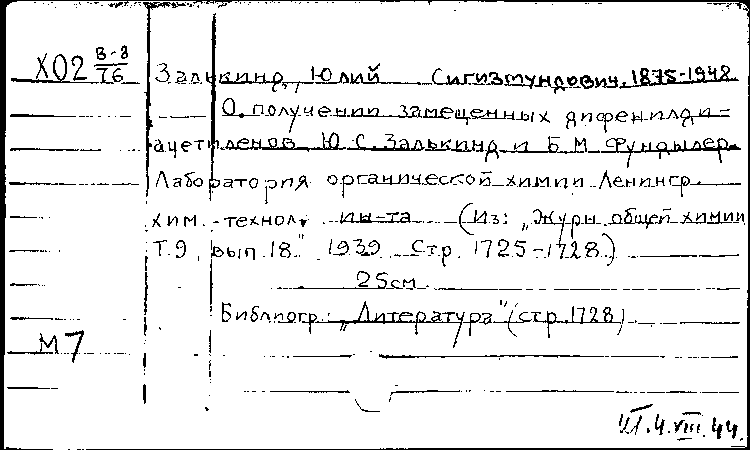 Х02 В-8/Т6 Залькинд, Юлий Сигизмундович, 1875-1942
О получении замещенных дифенилди-
ацетиленов Ю. С. Залькинд и Б. М. Фундылер.
Лаборатория органической химии Ленингр.
хим.-технол. ин-та (Из: „Журн общей химии
Т.9, вып 18" 1939 Стр. 1725-1728)
25см
Библиогр.: „Литература" (стр. 1728)
М7
4.VIII.44.